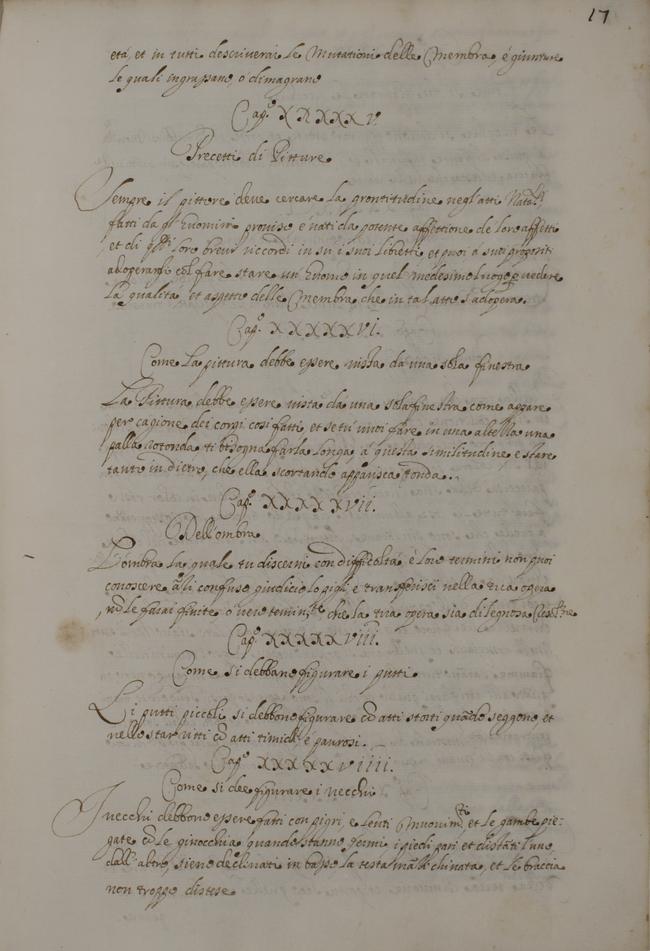 17
età, et in tutti descriverai le Mutationi delle Membra, e giunture
le quali ingrassano, o dimagrano
Cap.º XXXXXV.
Precetti di Pitture
Sempre il pittore deve cercare la prontitudine negl'atti Nat.li
fatti da gl'Huomini proviso e nati da potente affettione de loro affetti
et di q.ti fare brevi riccordi in su i suoi libretti et puoi a suoi propositi
adoperargli col fare stare un huomo in quel medesimo luogo p vedere
la qualità et aspetti delle Membra che in tal atto s'adopera.
Cap.º XXXXXVI.
Come la pittura debbe essere vista da una sola finestra
La Pittura debbe essere vista da una sola finestra come appare
per cagione dei corpi così fatti et se tu vuoi fare in una altezza una
palla rotonda ti bisogna farla longa à questa similitudine, e stare
tanto indietro, che ella scortando apparisca tonda.
Cap.º XXXXXVII.
Dell'ombra
L'ombra la quale tu discerni con difficoltà, e loro termini non puoi
conoscere, anzi confuso giudicio lo pigli, e transferisci nella tua opera
nō le farai finite, o vero che la tua opera sia di legnosa
Cap.º XXXXXVIII.
Come si debbano figurare i putti
Li putti piccoli si debbono figurare cō atti storti quādo seggono et
nello star ritti cō atti timidi e paurosi.
Cap.º XXXXXVIIII.
Come si dee figurare i vecchi
I vecchi debbono essere fatti con pigri, e lenti Muovim.ti, et le gambe pie-
gate cō le ginocchia quando stanno fermi i piedi pari et distāti l'uno
dall'altro, sieno declinati in basso la testa ināzi chinata, et le braccia
non troppo distese